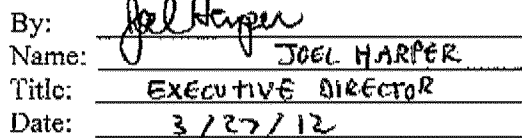 By: Joel Harper
Name: JOEL HARPER
Title: EXECUTIVE DIRECTOR
Date: 3/27/12